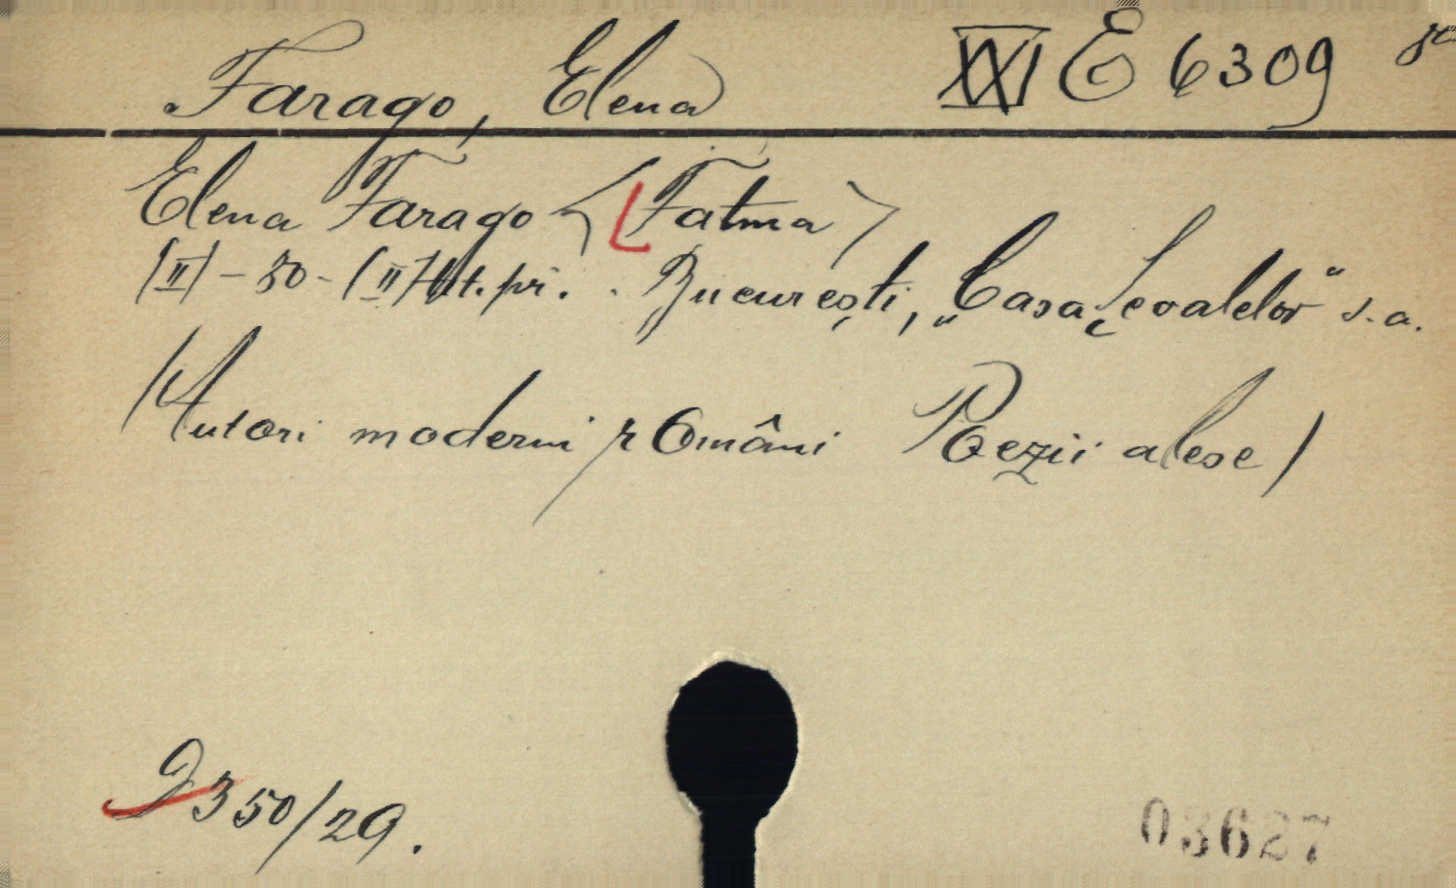 Farago, Elena XXI E 6309
Elena Farago <Fatma>
(II) – 80 - (II) lit. pr. . București, „Casa Școalelor" s.a.
(Autori moderni români Poezii alese)
350/29.
03627